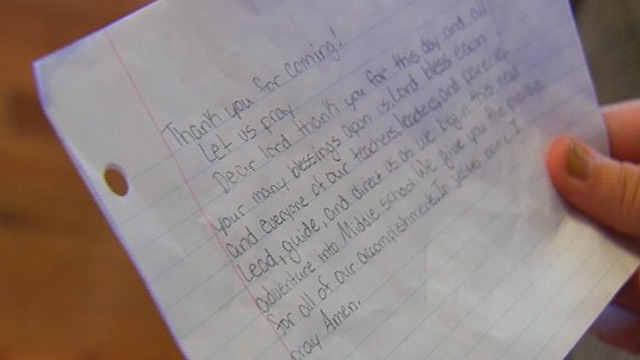 Thank you for coming!
Let us pray
Dear lord thank you for this day and all
your many blessings apon us. Lord bless each
and everyone of our teachers, leaders, and parents.
Lead, guide, and direct us as we begin this next
adventure into Middle school. We give you the praise
for all of our accomplishments. In Jesus name I
pray Amen.